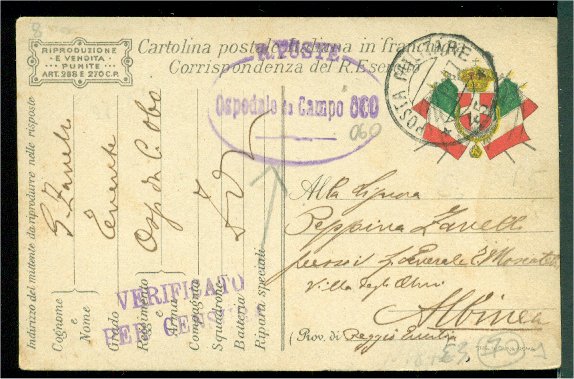 RIPRODUZIONE
E VENDITA
PUNITE
ART. 268 E 270 C.P.
Cartolina postale italiana in franchigia
Corrispondenza del R. Esercito
R. POSTE
Ospedale da Campo 060
060
POSTA MILITARE
Indirizzo del mittente da riprodurre nelle risposte
Cognome e Nome
Grado
Reggimento e Arma
Compagnia
Squadrone
Batteria
Riparti speciali
Tenente
Osp da C. 060
VERIFICATO
PER CENSURA
Alla Signora
Peppina Zanelli
presso il Generale
Villa degli Ulivi
Albinea
(Prov. di Reggio Emilia